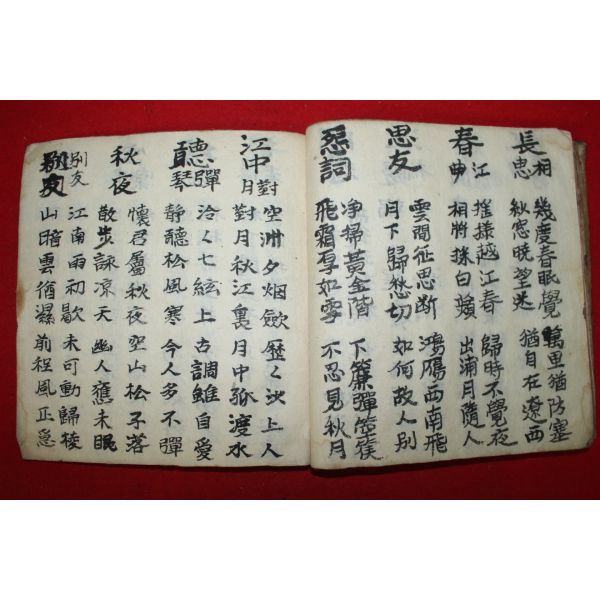 長相思
幾度春眠覺 萬里猶防塞
秋窓曉望迷 猶自在遼西
春江
搖樣越江春 歸時不覺夜
相將採白蘋 出浦月隨人
思友
雲間征思断 鴻鴈西南飛
月下歸愁切 如何故人別
怨詞
淨掃黃金階 下簾彈箜篌
飛霜厚如雪 不忍見秋月
江中對月
空洲夕烟斂 歷く沙上人
對月秋江裏 月中孤渡水
聽彈琴
泠く七絃上 古調雖自愛
静聽松風寒 今人多不彈
秋夜
懷君屬秋夜 空山松子落
散步詠凉天 幽人應未眠
別友
別友
江南雨初歇 未可動歸棱
山暗雲猶濕 前程風正急